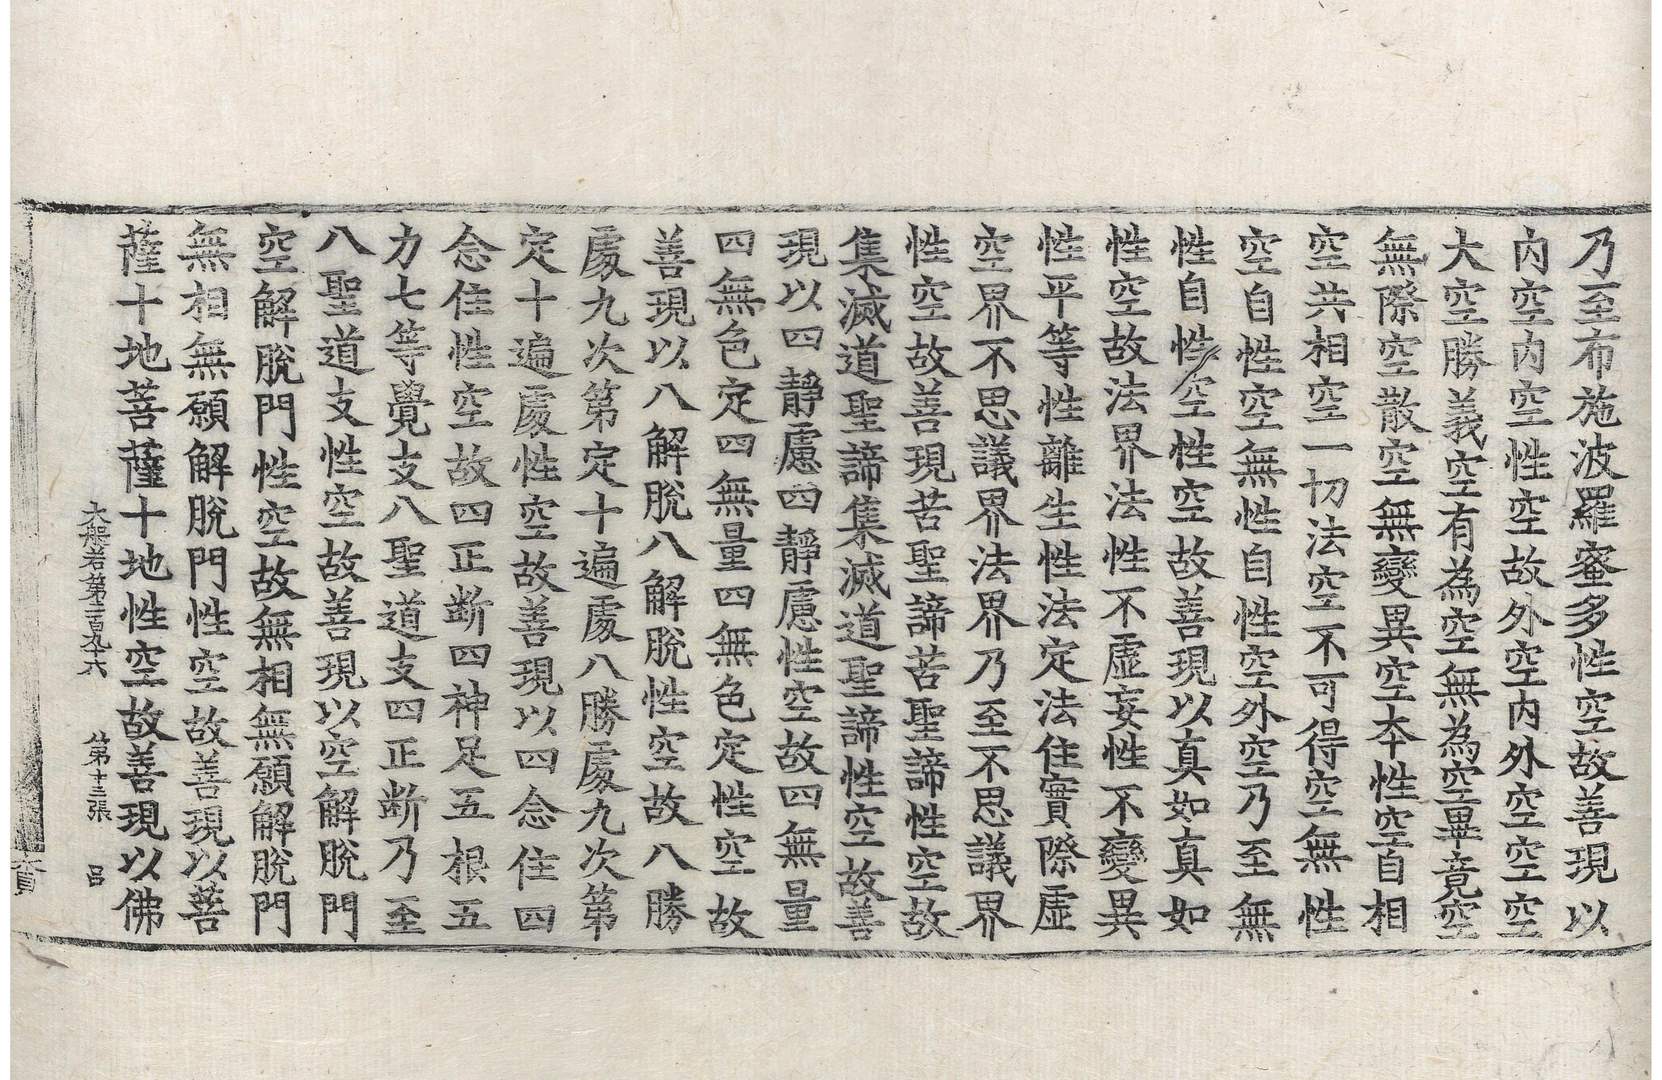 乃至布施波羅蜜多性空故善現以
内空内空性空故外空内外空空空
大空勝義空有為空無為空畢竟空
無際空散空無變異空本性空自相
空共相空一切法空不可得空無性
空自性空無性自性空外空乃至無
性自性空性空故善現以真如真如
性空故法界法性不虛妄性不變異
性平等性離生性法定法住實際虛
空界不思議界法界乃至不思議界
性空故善現苦聖諦苦聖諦性空故
集滅道聖諦集滅道聖諦性空故善
現以四靜慮四靜慮性空故四無量
四無色定四無量四無色定性空故
善現以八解脫八解脫性空故八勝
處九次第定十遍處八勝處九次第
定十遍處性空故善現以四念住四
念住性空故四正断四神足五根五
力七等覺支八聖道支四正断乃至
八聖道支性空故善現以空解脫門
空解脫門性空故無相無願解脫門
無相無願解脫門性空故善現以菩
薩十地菩薩十地性空故善現以佛
大般若第三百九十六 第十三張 呂